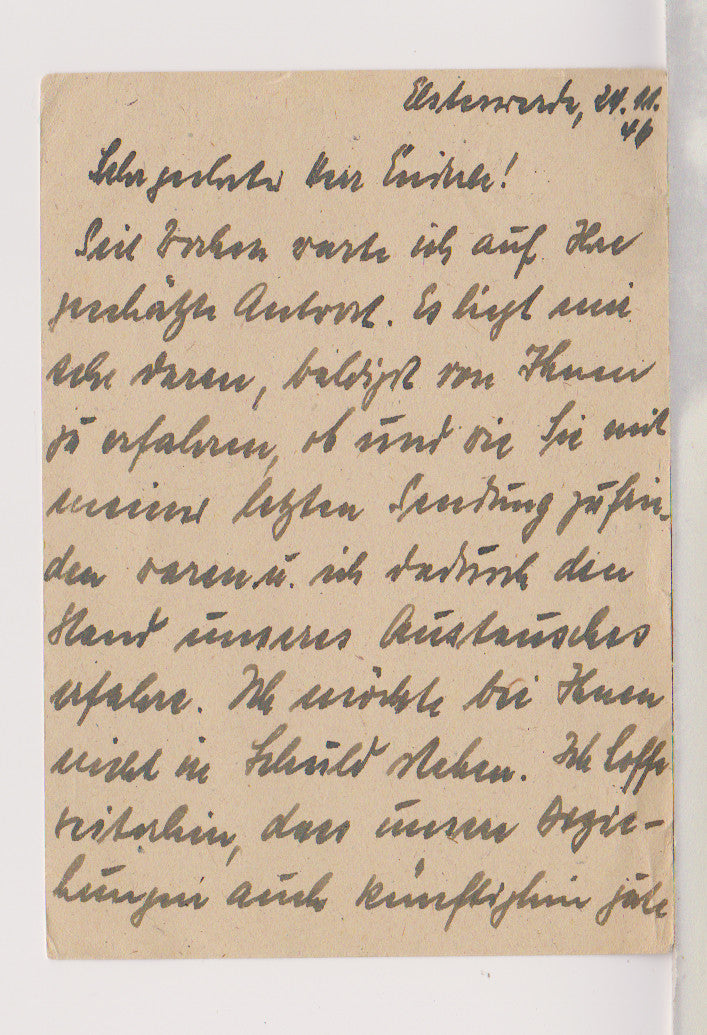 Elsterwerda, 24.11.
46
Sehr geehrter Herr
Seit Wochen warte ich auf Ihre
geschätzte Antwort. Es liegt mir
sehr daran, baldigst von Ihnen
zu erfahren, ob und wie Sie mit
meiner letzten Sendung zufrie-
den waren u. ich dadurch den
Stand unseres Austausches
erfahre. Ich möchte bei Ihnen
nicht in Schuld stehen. Ich hoffe
weiterhin, dass unsere Bezie-
hungen auch künftighin gute